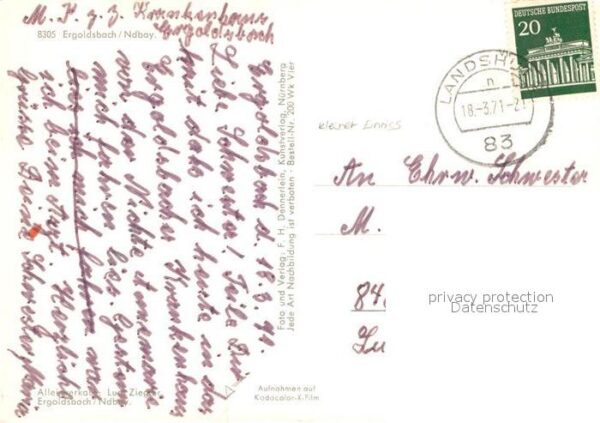 M. P. z. Z. Krankenhaus
Ergoldsbach
8305 Ergoldsbach/Ndbay.
Ergoldsbach d. 16.3.71.
Liebe Schwester! Teile Dir
mit das ich heute in das
Ergoldsbacher Krankenhaus
mich fahren lies. Gestern
war
ich beim Arzt. Herzliche
Grüsse Deine Schwester Maria
Foto und Verlag: F. H. Dennerlein, Kunstverlag, Nürnberg
Jede Art Nachbildung ist verboten · Bestell-Nr. 200 Wk Vier
Alleinverkauf: Lud. Ziegler,
Ergoldsbach/Ndbay.
Aufnahmen auf
Kodacolor-X-Film
DEUTSCHE BUNDESPOST
20
LANDSHUT
n
18.-3.71-21
83
kleiner Einriss
An Ehrw. Schwester
M.
84
privacy protection
Datenschutz